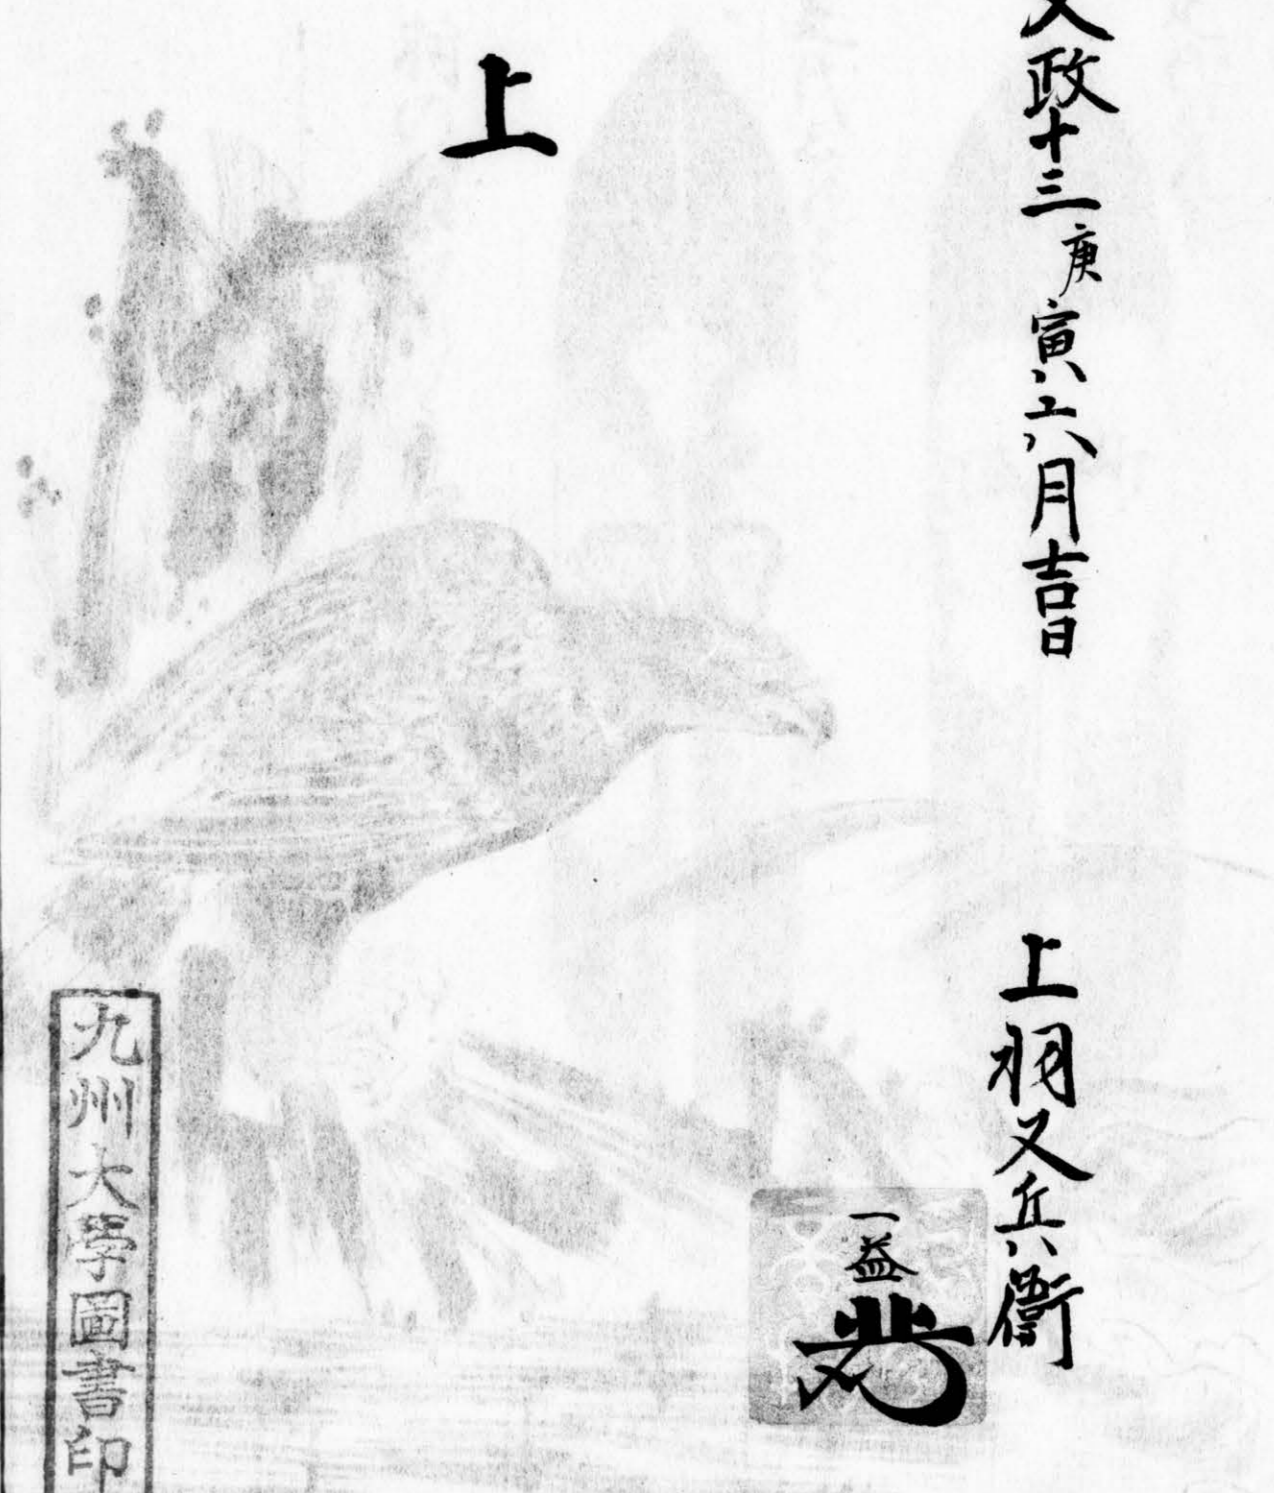 文政十三庚寅六月吉日
上羽又兵衛
一益
上
九州大学圖書印